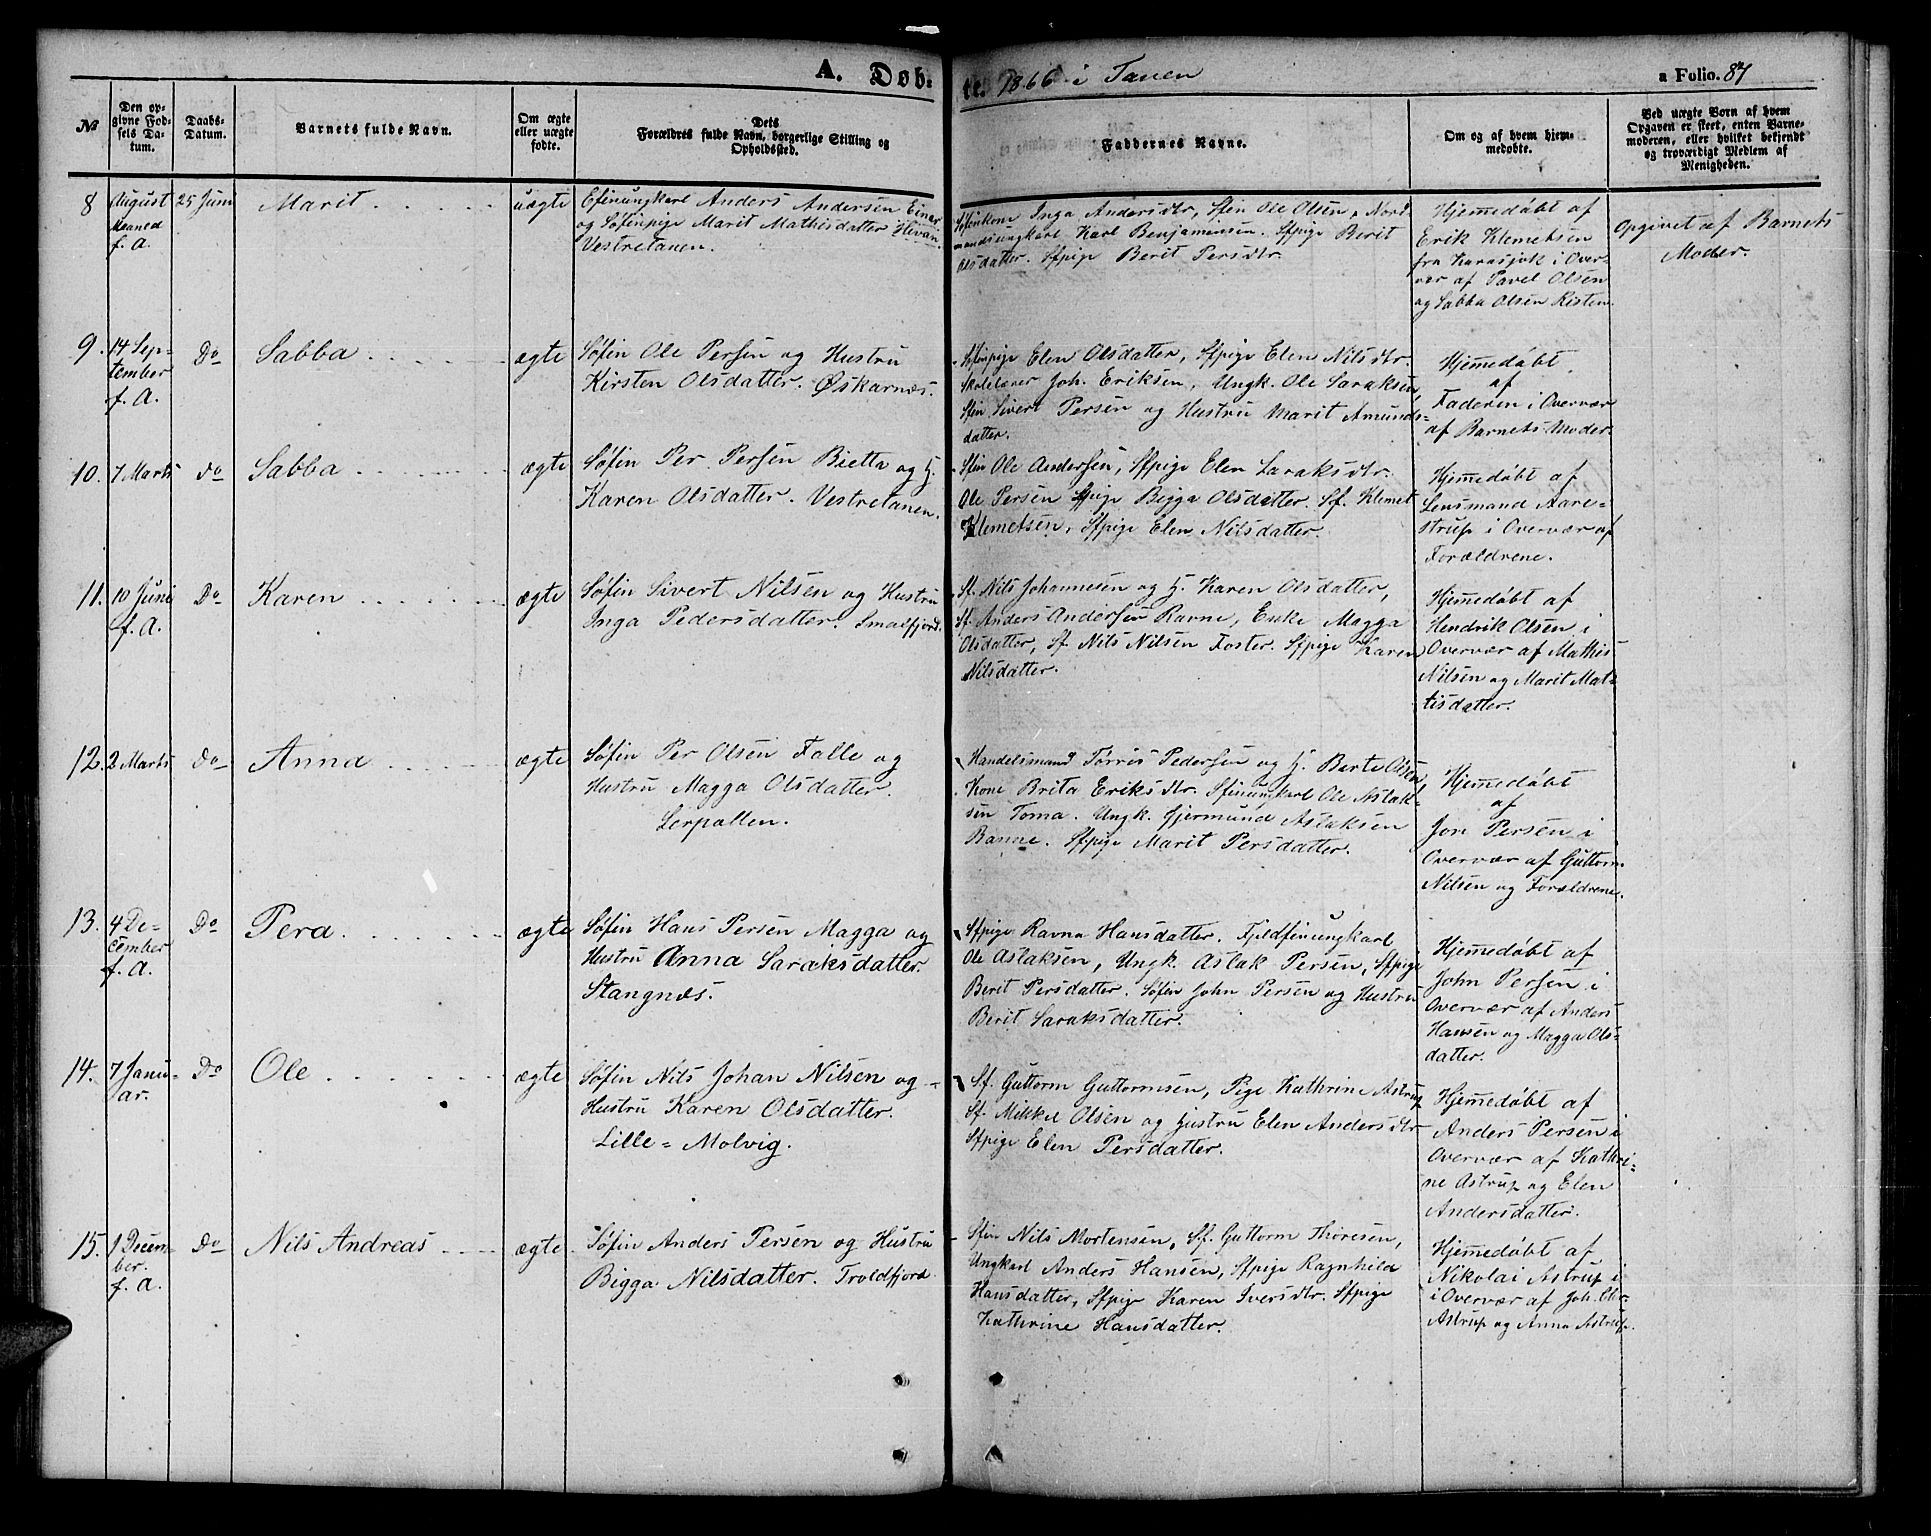 A. Døb-
te. 1866 i Tanen
a Folio. 87
№
Den op-
givne Fød-
sels Da-
tum.
Daabs-
Datum.
Barnets fulde Navn.
Om ægte
eller uægte
fødte.
Dets
Forældres fulde Navn, borgerlige Stilling og
Opholdssted.
Faddernes Navne.
Om og af hvem hjem-
medøbte.
Ved uægte Børn af hvem
Opgaven er skeet, enten Barne-
moderen, eller hvilket bekjendt
og troværdigt Medlem af
Menigheden.
8
August
Maaned
f. A.
25 Juni
Marit
uægte
Anders Andersen Einar
og Søfinpige Marit Mathisdatter Hivan
Vestretanen.
Søfinkone Inga Andersdtr, Sfin Ole Olsen, Nord
mandsungkarl Karl Benjamensen. Sfpige Berit
Olsdatter. Sfpige Berit Persdtr.
Hjemmedøbt af
Erik Klemetsen
fra Karasjok i Over-
vær af Pavel Olsen
og Sabba Olsen Risten
Opgivet af Barnets
Moder.
9.
14 Sep-
tember
f. A.
Do
Sabba
ægte
Søfin Ole Persen og Hustru
Kirsten Olsdatter. Øskarnæs.
Søfinpige Elen Olsdatter, Sfpige Elen Nilsdtr.
Skolelærer Joh. Eriksen, Ungk. Ole Saraksen,
Sfin Sivert Persen og Hustru Marit Amunds-
datter.
Hjemmedøbt
af
Faderen i Overvær
af Barnets Moder.
10.
7 Marts
do
Sabba
ægte
Søfin Per Persen Bietta og H.
Karen Olsdatter. Vestretanen.
Sfin Ole Andersen, Sfpige Elen Saraksdtr.
Ole Persen Sfpige Bigga Olsdatter. Sf. Klemet
Klemetsen, Sfpige Elen Nilsdatter.
Hjemmedøbt af
Lensmand Aare-
strup i Overvær af
Forældrene.
11.
10 Juni
f. A.
Do
Karen
ægte
Søfin Sivert Nilsen og Hustru
Inga Pedersdatter. Smalfjord.
Sf. Nils Johannesen og H. Karen Olsdatter,
Sf. Anders Andersen Ravne, Enke Magga
Olsdatter, Sf Nils Nilsen Foster. Sfpige Karen
Nilsdatter.
Hjemmedøbt af
Hendrik Olsen i
Overvær af Mathis
Nilsen og Marit Mat-
tisdatter.
12.
2 Marts
do
Anna
ægte
Søfin Per Olsen Falle og
Hustru Magga Olsdatter.
Lerpollen.
Handelsmand Tørris Pedersen og H. Berte Olsen
Kone Brita Eriksdtr. Sfinungkarl Ole Aslak-
sen Toma. Ungk. Gjermund Aslaksen
Banne. Sfpige Marit Persdatter.
Hjemmedøbt
af
Jon Persen i
Overvær af Guttorm
Nilsen og Forældrene.
13.
4 De-
cember
f. A.
Do
Pera.
ægte
Søfin Hans Persen Magga og
Hustru Anna Saraksdatter
Stangnæs.
Sfpige Ravna Hansdatter. Fjeldfinungkarl
Ole Aslaksen, Ungk. Aslak Persen, Sfpige
Berit Persdatter. Søfin John Persen og Hustru
Berit Saraksdatter.
Hjemmedøbt af
John Persen i
Overvær af Anders
Hansen og Magga Ols-
datter.
14.
7 Janu-
ar.
Do
Ole
ægte
Søfin Nils Johan Nilsen og
Hustru Karen Olsdatter.
Lille=Molvig.
Sf. Guttorm Guttormsen, Pige Kathrine Astrup
Sf. Mikkel Olsen og Hustru Elen Andersdtr
Sfpige Elen Persdatter.
Hjemmedøbt af
Anders Persen i
Overvær af Kathri-
ne Astrup og Elen
Andersdatter.
15.
1 Decem-
ber.
f. A.
Do
Nils Andreas
ægte
Søfin Anders Persen og Hustru
Bigga Nilsdatter. Troldfjord
Sfin Nils Mortensen, Sf. Guttorm Thoresen,
Ungkarl Anders Hansen, Sfpige Ragnhild
Hansdatter, Sfpige Karen Iversdtr. Sfpige
Kathrine Hansdatter.
Hjemmedøbt af
Nikolai Astrup i
i Overvær af Joh. Chr.
Astrup og Anna Astrup.